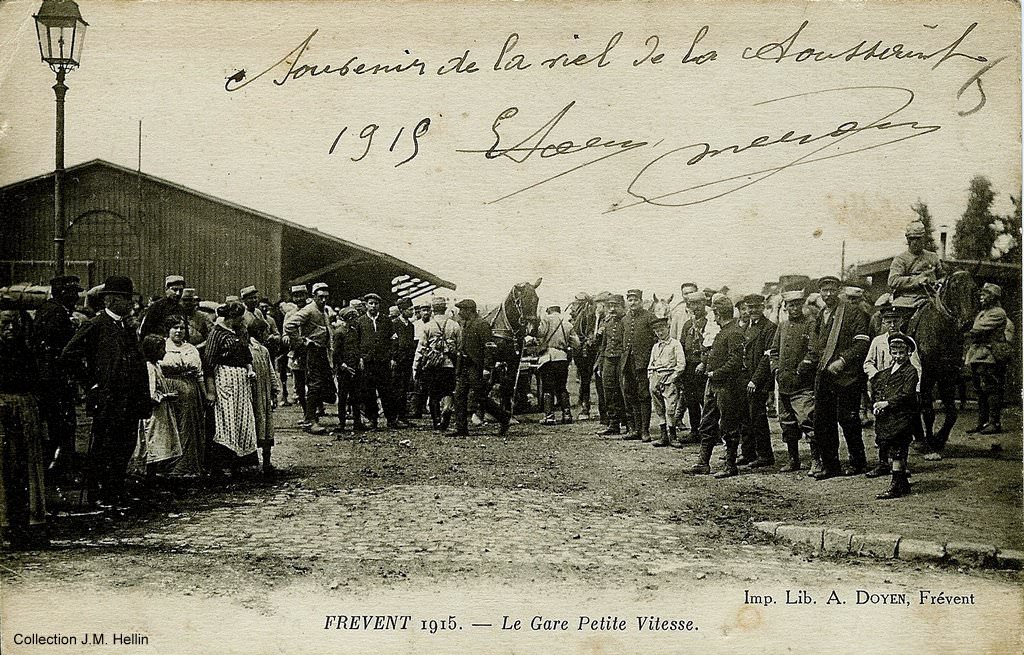 Souvenir de la viel de la
1915
Imp. Lib. A. DOYEN, Frévent
FREVENT 1915. — Le Gare Petite Vitesse.
Collection J.M. Hellin